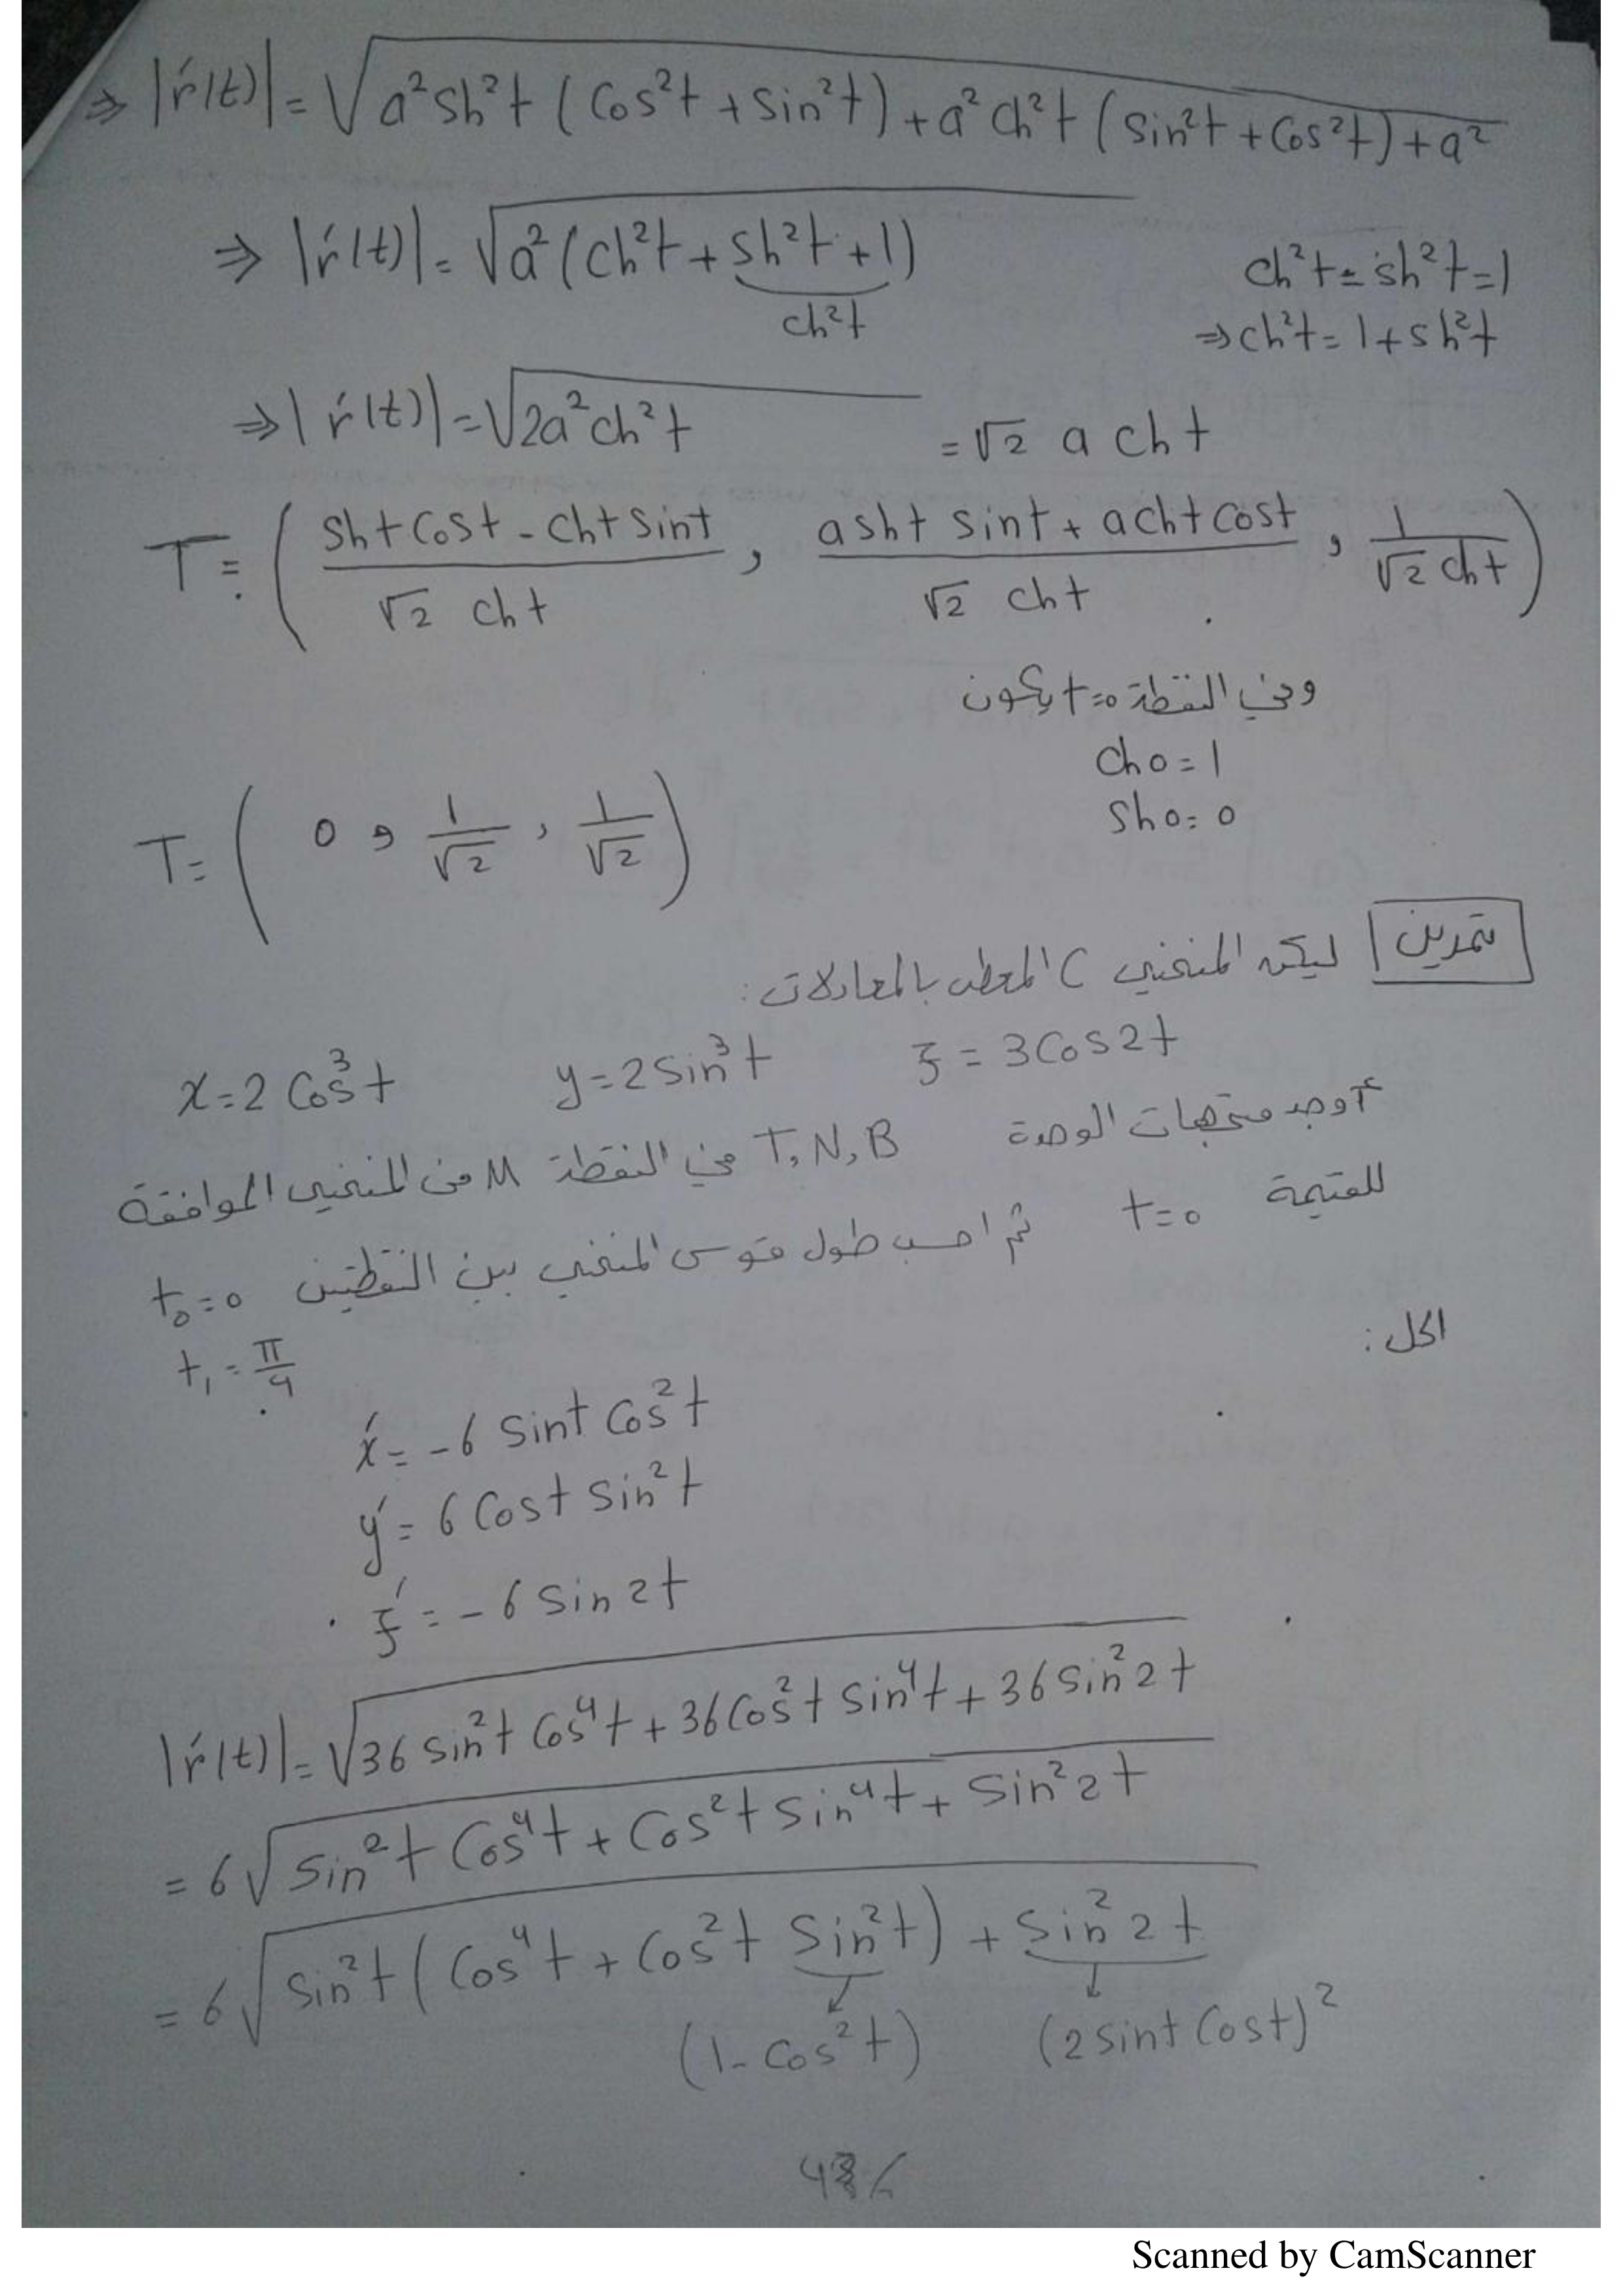 ⇒ |ŕ(t)| = √(a² sh² t (Cos² t + Sin² t) + a² ch² t (Sin² t + Cos² t) + a²)
⇒ |ŕ(t)| = √(a² (ch² t + sh² t + 1))
ch² t - sh² t = 1
ch² t
⇒ ch² t = 1 + sh² t
⇒ |ŕ(t)| = √(2a² ch² t) = √2 a ch t
T = ( (sh t Cos t - ch t Sin t) / (√2 ch t) , (a sh t Sin t + a ch t Cos t) / (√2 ch t) , 1 / (√2 ch t) )
وفي النقطة t=0 يكون
Ch 0 = 1
Sh 0 = 0
T = ( 0 , 1/√2 , 1/√2 )
تمرين ليكن المنحني C المعطى بالمعادلات:
x = 2 Cos³ t y = 2 Sin³ t z = 3 Cos 2t
أوجد متجهات الوحدة T, N, B في النقطة M من المنحني الموافقة
للقيمة t=0 ثم احسب طول قوس المنحني بين النقطتين t₀=0
t₁ = π/4
الحل:
x́ = -6 Sin t Cos² t
ý = 6 Cos t Sin² t
ź = -6 Sin 2t
|ŕ(t)| = √(36 Sin² t Cos⁴ t + 36 Cos² t Sin⁴ t + 36 Sin² 2t)
= 6 √(Sin² t Cos⁴ t + Cos² t Sin⁴ t + Sin² 2t)
= 6 √(Sin² t (Cos⁴ t + Cos² t Sin² t) + Sin² 2t)
(1 - Cos² t) (2 Sin t Cos t)²
Scanned by CamScanner